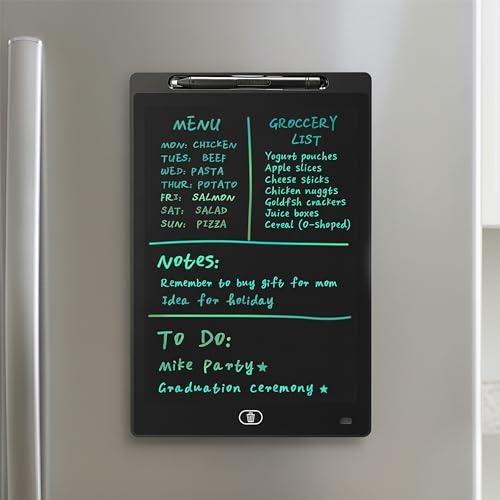 MENU
MON: CHICKEN
TUES: BEEF
WED: PASTA
THUR: POTATO
FRI: SALMON
SAT: SALAD
SUN: PIZZA
GROCCERY
LIST
Yogurt pouches
Apple slices
Cheese sticks
Chicken nuggts
Goldfsh crackers
Juice boxes
Cereal (O-shoped)
Notes:
Remember to buy gift for mom
Idea for holiday
TO DO:
Mike Party★
Graduation ceremony★